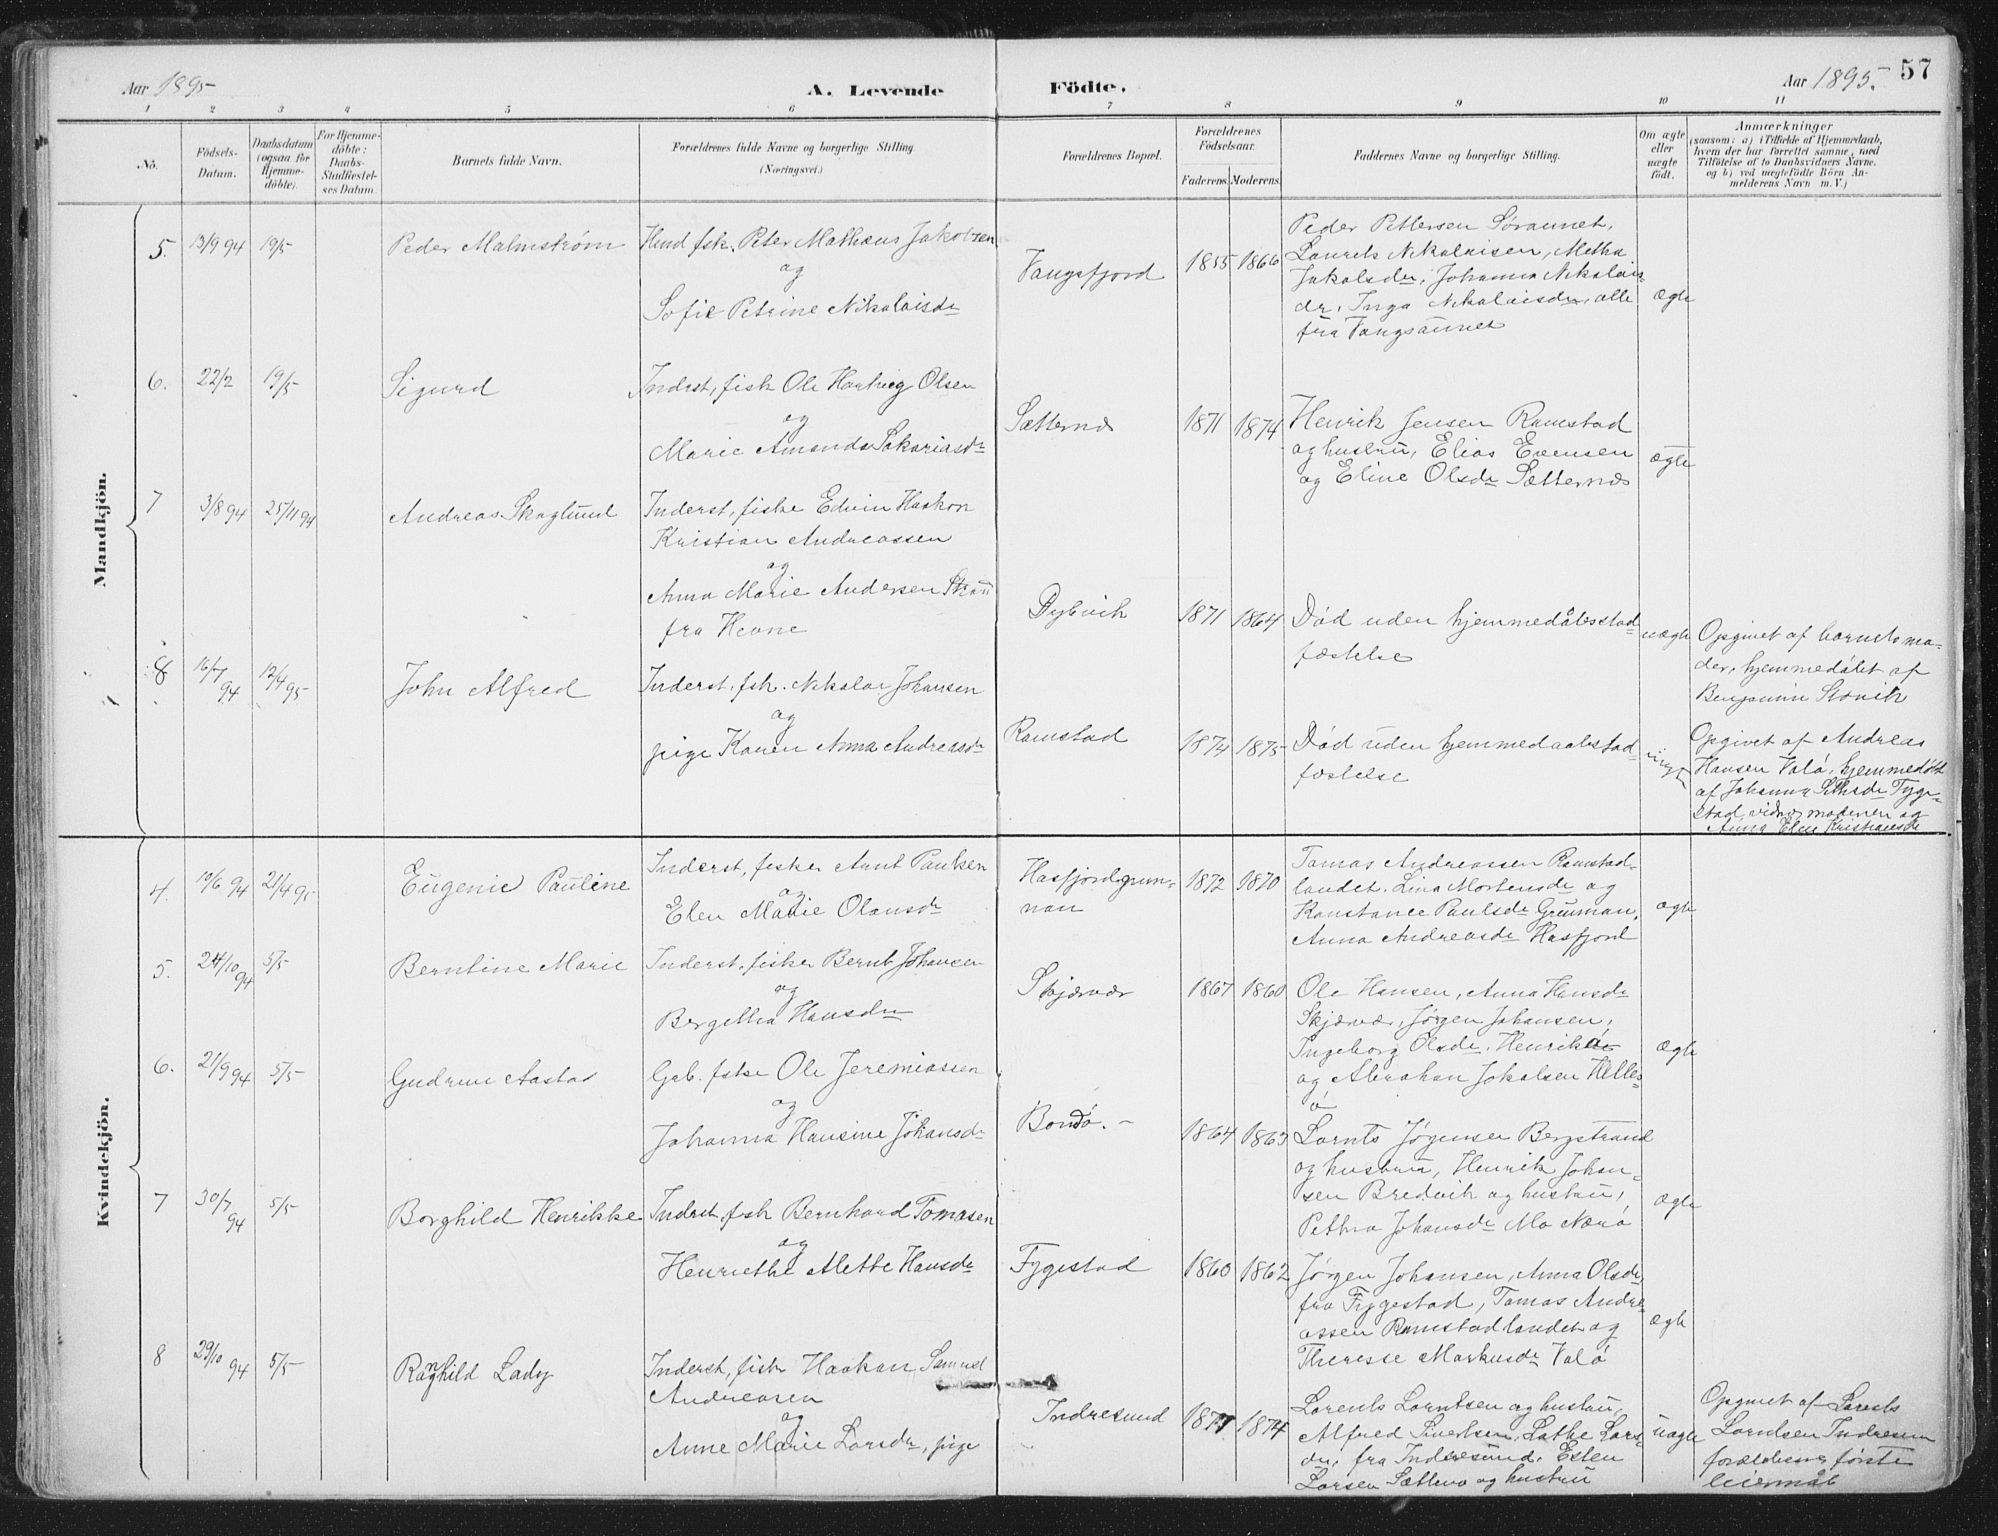 Aar 1895
A. Levende
Födte.
Aar 1895.
57
1 2 3 4 5 6 7 8 9 10 11
Nô.
Födsels-
Datum.
Daabsdatum
(ogsaa for
Hjemme-
döbte).
For Hjemme-
döbte:
Daabs-
Stadfæstel-
ses Datum.
Barnets fulde Navn.
Forældrenes fulde Navne og borgerlige Stilling.
(Næringsvei.)
Forældrenes Bopæl.
Forældrenes
Födselsaar.
Faderens. Moderens.
Faddernes Navne og borgerlige Stilling.
Om ægte
eller
uægte
födt.
Anmærkninger
(saasom: a) i Tilfælde af Hjemmedaab,
hvem der har forrettet samme, med
Tilföielse af to Daabsvidners Navne.
og b) ved uægtefödte Börn An-
melderens Navn m. V.)
Mandkjön.
5. 13/9 94 19/5 Peder Malmstrøm
Husd fsk. Peter Mathæus Jakobsen
og
Sofie Petrine Nikolaisdr
Vangsfjord 1855 1866
Peder Pettersen Søraunet,
Laurets Nikolaisen, Metha
Jakobsdr, Johanna Nikolais-
dr. Inga Nikolaisdr, alle
fra Vangsaunet
ægte
6. 22/2 19/5 Sigurd
Inderst, fisk Ole Hartvig Olsen
og
Marie Amanda Sakariasdr
Sætternæs 1871 1874
Henrik Jensen Ramstad
og hustru, Elias Evensen
og Eline Olsdr Sætternæs
ægte
7 3/8 94 25/11 94 Andreas Skaglund
Inderst, fiske Edvin Haakon
Kristian Andreassen
og
Anna Marie Andersen
fra Hevne
Dybvik 1871 1864
Død uden hjemmedåbsstad-
fæstelse
uægte
Opgivet af barnets mo-
der, hjemmedøbt af
Benjamin Storvik
8 16/7 94 12/4 95 John Alfred
Inderst. fsk. Nikolai Johansen
og
pige Karen Anna Andreasdr
Ramstad 1874 1875
Død uden hjemmedaabsstad-
fæstelse
Opgivet af Andreas
Hansen Valø, hjemmedøbt
af Johanna Tyge-
stad, vidner moderen og
Anna Elen Kristiansdr
Kvindekjön.
4. 10/6 94 21/4 95 Eugenie Pauline
Inderst, fisker Arnt Paulsen
og
Elen Marie Olausdr
Hasfjordgrun-
nan 1872 1870
Tomas Andreassen Ramstad-
landet. Lina Mortensdr og
Konstance Paulsdr Grunnan,
Anna Andreasdr Hasfjord
ægte
5. 24/10 94 5/5 Berntine Marie
Inderst, fisker Bernt Johansen
og
Bergitha Hansdr
Skjærvær 1867 1860
Ole Hansen, Anna Hansdr
Skjærvær, Jørgen Johansen,
Ingeborg Olsdr. Henrik
og Abrahan Jakobsen Helles-
ø
ægte
6. 21/9 94 5/5 Gudrun Aastad
Grb. fske Ole Jeremiassen
og
Johanna Hansine Johansdr
Bondø. 1864 1863
Lornts Jørgensen Bergstrand
og hustru, Henrik Johan-
sen Bredvik og hustru,
Pethra Johansdr Mo Nærø
ægte
7 30/7 94 5/5 Borghild Henrikke
Inderst, fsk Bernhard Tomasen
og
Henriethe Alette Hansdr
Fygestad 1860 1862
Jørgen Johansen, Anna Olsdr,
fra Fygestad, Tomas Andre-
assen Ramstadlandet og
Theresse Markusdr Valø
ægte
8 29/10 94 5/5 Ragnhild Lady
Inderst, fisk Haakon Samuel
Andreasen
og
Anne Marie Larsdr, pige
Indresund 1871 1874
Lorents Lorntsen og hustru,
Alfred Sivertsen, Lars-
dr, fra Indresund. Esten
Larsen og hustru
uægte
Opgivet af Lorents
Lorntsen Indresun
forældrenes første
leiermål